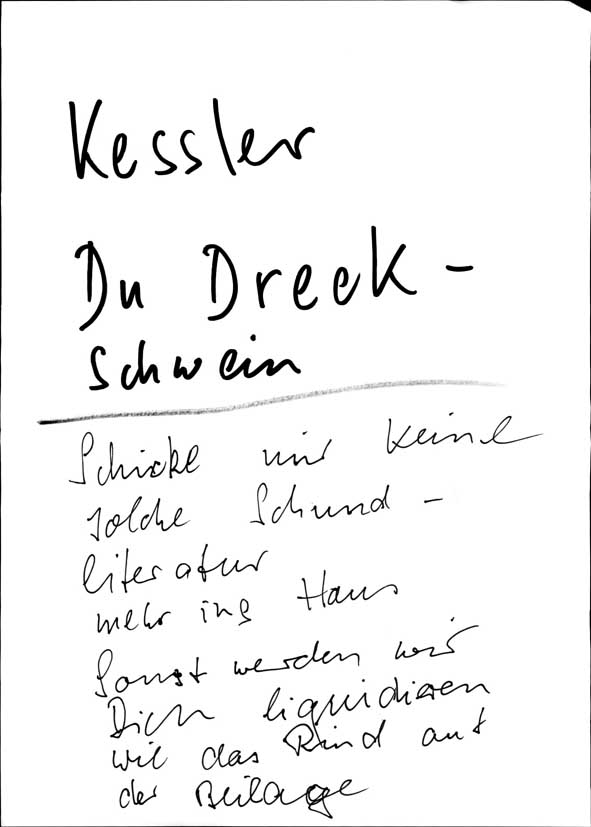 Kessler
Du Dreck-
schwein
Schicke mir keine
solche Schund-
literatur
mehr ins Haus
Sonst werden wir
Dich liquidieren
wie das Rind auf
der Beilage